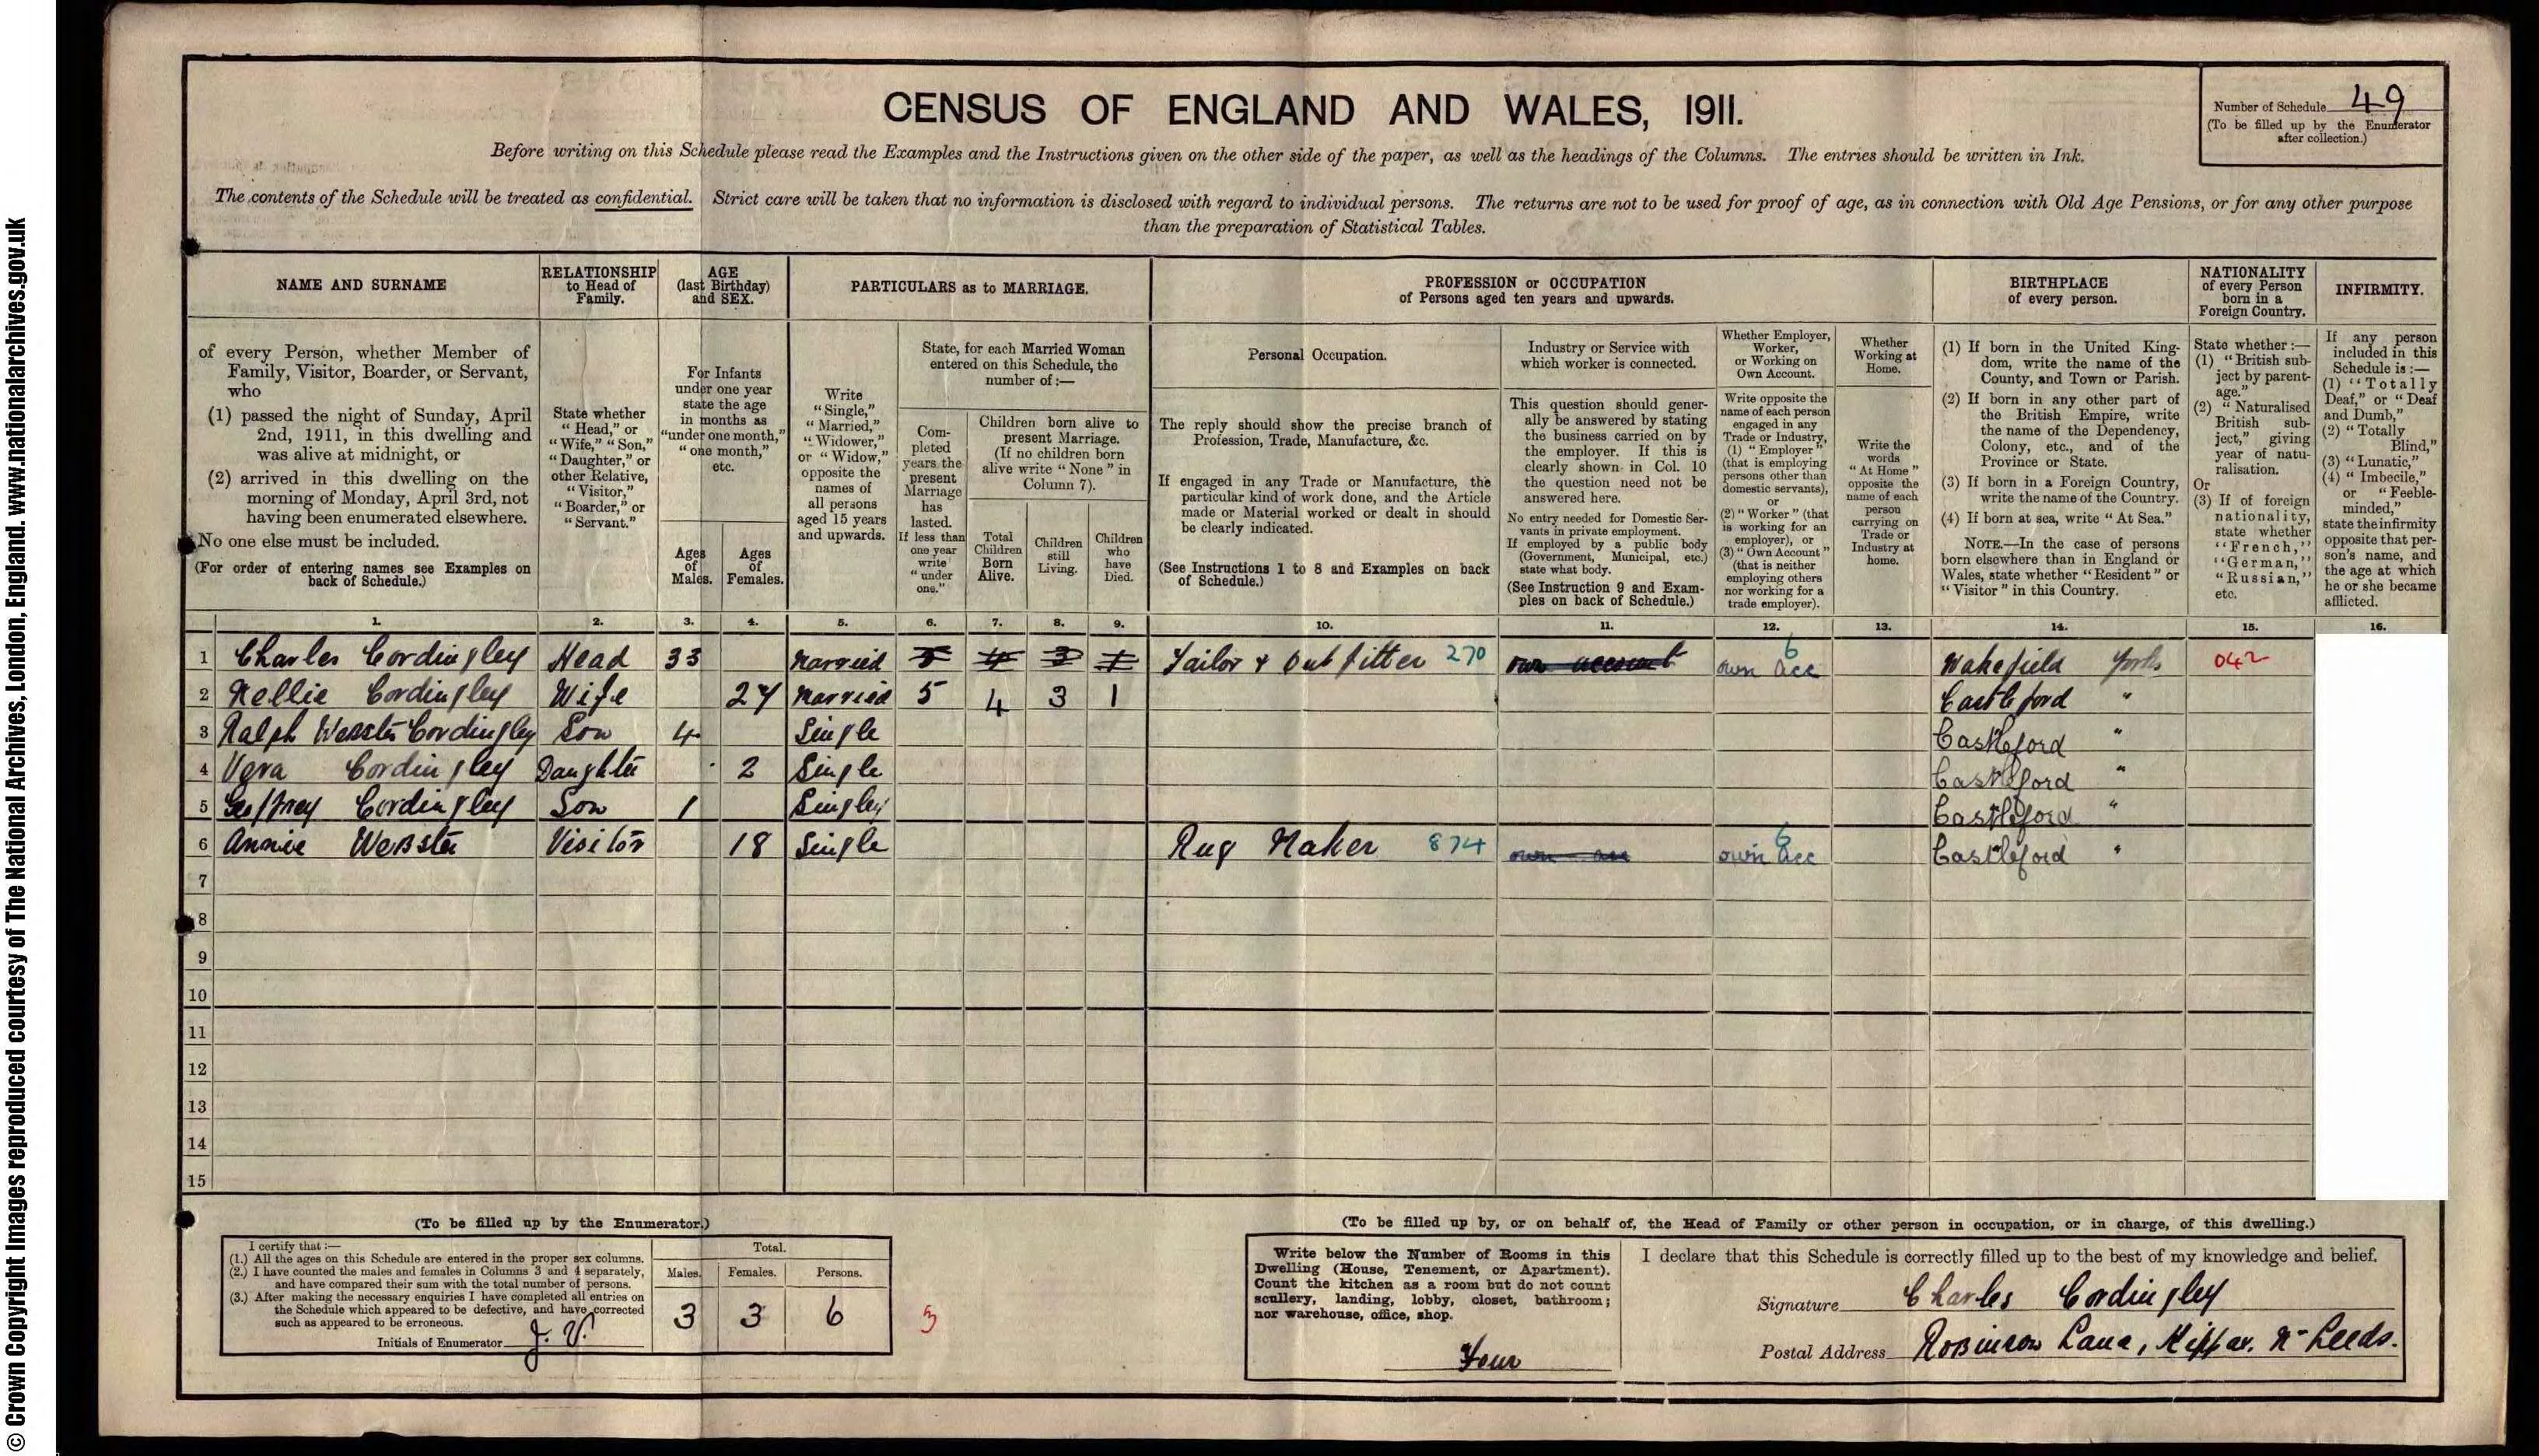 © Crown Copyright Images reproduced courtesy of The National Archives, London, England. www.nationalarchives.gov.uk
CENSUS OF ENGLAND AND WALES, 1911.
Number of Schedule 49
(To be filled up by the Enumerator
after collection.)
Before writing on this Schedule please read the Examples and the Instructions given on the other side of the paper, as well as the headings of the Columns. The entries should be written in Ink.
The contents of the Schedule will be treated as confidential. Strict care will be taken that no information is disclosed with regard to individual persons. The returns are not to be used for proof of age, as in connection with Old Age Pensions, or for any other purpose
than the preparation of Statistical Tables.
NAME AND SURNAME
of every Person, whether Member of
Family, Visitor, Boarder, or Servant,
who
(1) passed the night of Sunday, April
2nd, 1911, in this dwelling and
was alive at midnight, or
(2) arrived in this dwelling on the
morning of Monday, April 3rd, not
having been enumerated elsewhere.
No one else must be included.
(For order of entering names see Examples on
back of Schedule.)
RELATIONSHIP
to Head of
Family.
State whether
"Head," or
"Wife," "Son,"
"Daughter," or
other Relative,
"Visitor,"
"Boarder," or
"Servant."
AGE
(last Birthday)
and SEX.
For Infants
under one year
state the age
in months as
"under one month,"
"one month,"
etc.
Ages
of
Males.
Ages
of
Females.
PARTICULARS as to MARRIAGE.
Write
"Single,"
"Married,"
"Widower,"
or "Widow,"
opposite the
names of
all persons
aged 15 years
and upwards.
State, for each Married Woman
entered on this Schedule, the
number of :—
Com-
pleted
years the
present
Marriage
has
lasted.
If less than
one year
write
"under
one."
Children born alive to
present Marriage.
(If no children born
alive write "None" in
Column 7).
Total
Children
Born
Alive.
Children
still
Living.
Children
who
have
Died.
PROFESSION or OCCUPATION
of Persons aged ten years and upwards.
Personal Occupation.
The reply should show the precise branch of
Profession, Trade, Manufacture, &c.
If engaged in any Trade or Manufacture, the
particular kind of work done, and the Article
made or Material worked or dealt in should
be clearly indicated.
(See Instructions 1 to 8 and Examples on back
of Schedule.)
Industry or Service with
which worker is connected.
This question should gener-
ally be answered by stating
the business carried on by
the employer. If this is
clearly shown in Col. 10
the question need not be
answered here.
No entry needed for Domestic Ser-
vants in private employment.
If employed by a public body
(Government, Municipal, etc.)
state what body.
(See Instruction 9 and Exam-
ples on back of Schedule.)
Whether Employer,
Worker,
or Working on
Own Account.
Write opposite the
name of each person
engaged in any
Trade or Industry,
(1) "Employer"
(that is employing
persons other than
domestic servants),
or
(2) "Worker" (that
is working for an
employer), or
(3) "Own Account"
(that is neither
employing others
nor working for a
trade employer).
Whether
Working at
Home.
Write the
words
"At Home"
opposite the
name of each
person
carrying on
Trade or
Industry at
home.
BIRTHPLACE
of every person.
(1) If born in the United King-
dom, write the name of the
County, and Town or Parish.
(2) If born in any other part of
the British Empire, write
the name of the Dependency,
Colony, etc., and of the
Province or State.
(3) If born in a Foreign Country,
write the name of the Country.
(4) If born at sea, write "At Sea."
NOTE.—In the case of persons
born elsewhere than in England or
Wales, state whether "Resident" or
"Visitor" in this Country.
NATIONALITY
of every Person
born in a
Foreign Country.
State whether :—
(1) "British sub-
ject by parent-
age."
(2) "Naturalised
British sub-
ject," giving
year of natu-
ralisation.
Or
(3) If of foreign
nationality,
state whether
"French,"
"German,"
"Russian,"
etc.
INFIRMITY.
If any person
included in this
Schedule is :—
(1) "Totally
Deaf," or "Deaf
and Dumb,"
(2) "Totally
Blind,"
(3) "Lunatic,"
(4) "Imbecile,"
or "Feeble-
minded,"
state the infirmity
opposite that per-
son's name, and
the age at which
he or she became
afflicted.
1. 2. 3. 4. 5. 6. 7. 8. 9. 10. 11. 12. 13. 14. 15. 16.
1 Charles Cordingley Head 33 Married 5 4 3 1 Tailor & Outfitter 270 own account own acc 6 Wakefield Yorks 042
2 Nellie Cordingley Wife 27 Married 5 4 3 1 Castleford "
3 Ralph Webster Cordingley Son 4 Single Castleford "
4 Vera Cordingley Daughter 2 Single Castleford "
5 Geoffrey Cordingley Son 1 Single Castleford "
6 Annie Webster Visitor 18 Single Rug Maker 874 own acc own acc 6 Castleford "
7
8
9
10
11
12
13
14
15
(To be filled up by the Enumerator.)
I certify that :—
(1.) All the ages on this Schedule are entered in the proper sex columns.
(2.) I have counted the males and females in Columns 3 and 4 separately,
and have compared their sum with the total number of persons.
(3.) After making the necessary enquiries I have completed all entries on
the Schedule which appeared to be defective, and have corrected
such as appeared to be erroneous.
Initials of Enumerator J. V.
Total.
Males. Females. Persons.
3 3 6
3
(To be filled up by, or on behalf of, the Head of Family or other person in occupation, or in charge, of this dwelling.)
Write below the Number of Rooms in this
Dwelling (House, Tenement, or Apartment).
Count the kitchen as a room but do not count
scullery, landing, lobby, closet, bathroom;
nor warehouse, office, shop.
Four
I declare that this Schedule is correctly filled up to the best of my knowledge and belief.
Signature Charles Cordingley
Postal Address Robinson Lane, Kippax. Nr Leeds.